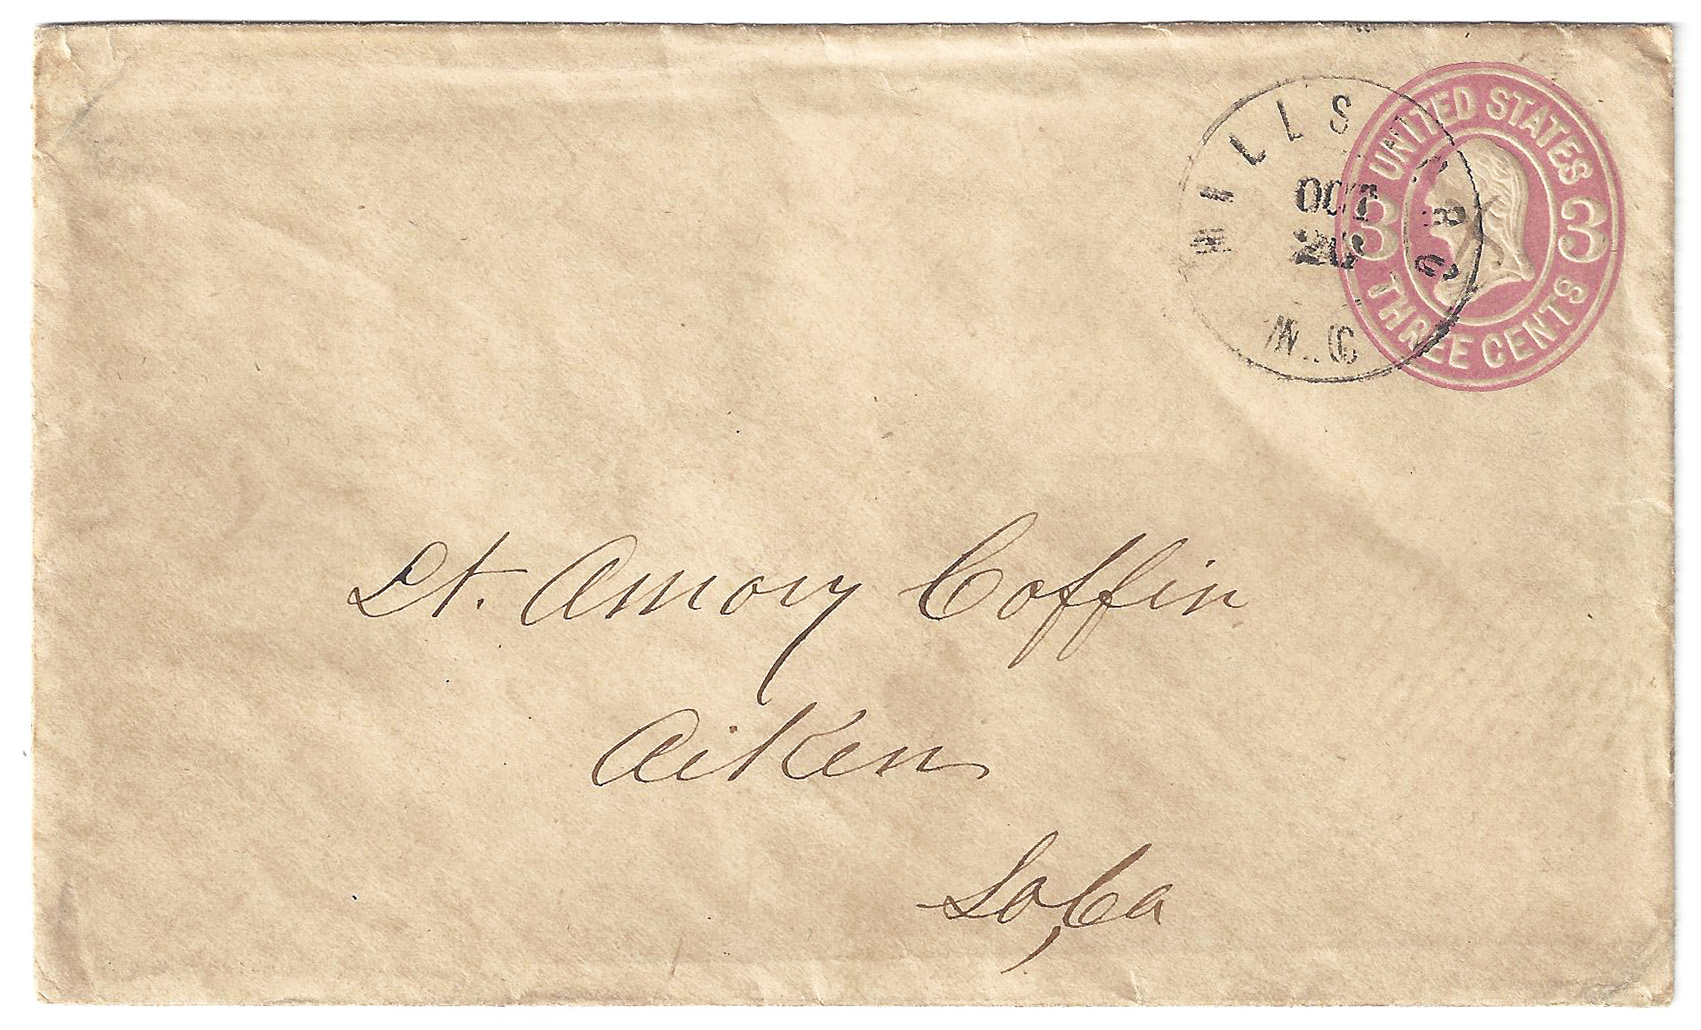 HILLSBORO
OCT
N.C.
UNITED STATES
3 3
THREE CENTS
Lt. Amory Coffin
Aiken
So, Ca